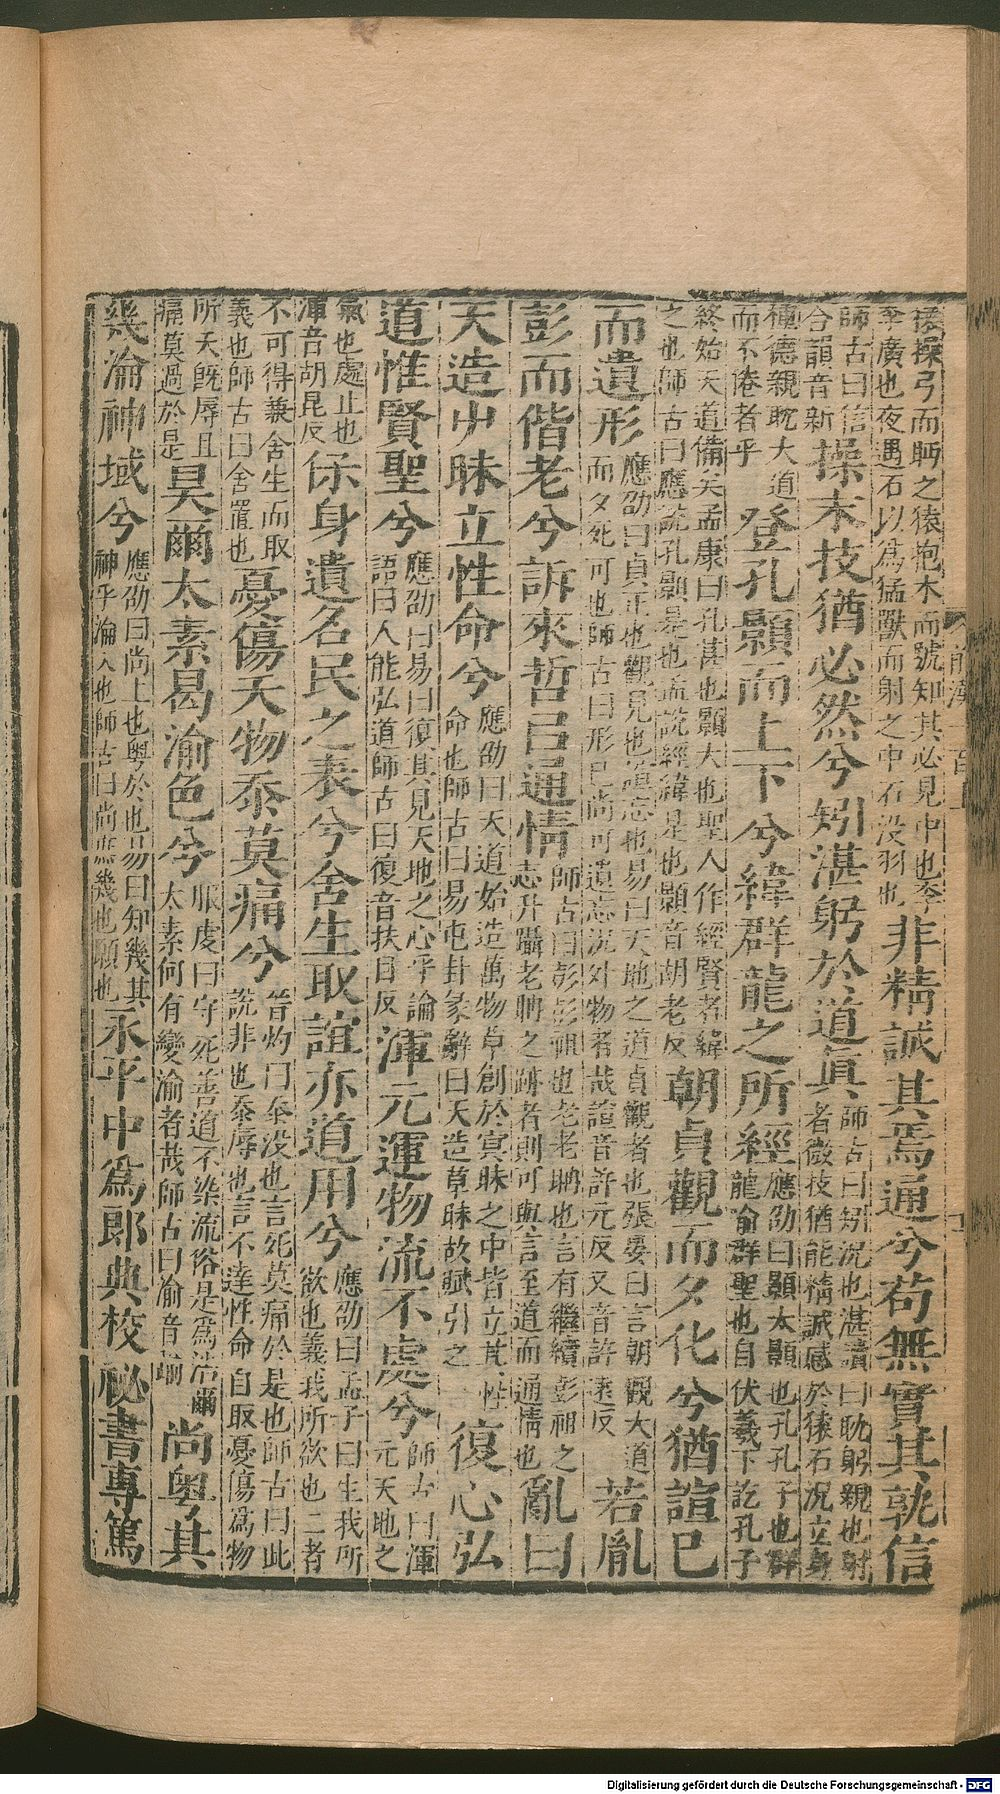 後操弓而眄之猿抱木而號知其必見中也李
李廣也夜遇石以爲猛獸而射之中石没羽也
非精誠其焉通兮苟無實其孰信
師古曰信
合韻音新
操末技猶必然兮矧湛躬於道真
師古曰矧況也湛讀曰耽躬親也射
者微技猶能精誠感於猿石况立身
種德親耽大道
而不倦者乎
登孔顥而上下兮緯群龍之所經
應劭曰顥太顥也孔孔子也群
龍喻群聖也自伏羲下訖孔子
終始天道備矣孟康曰孔甚也顥大也聖人作經賢者緯
之也師古曰應說孔顥是也孟說經緯是也顥音胡老反
朝貞觀而夕化兮猶諠己
而遺形
應劭曰貞正也觀見也諠忘也易曰天地之道貞觀者也張晏曰言朝觀大道
而夕死可也師古曰形已尚可遺忘況外物者哉諠音許元反又音許遠反
若胤
彭而偕老兮訴來哲㠯通情
師古曰彭彭祖也老老聃也言有繼續彭祖之
志升躡老聃之跡者則可與言至道而通情也
亂曰
天造屮昧立性命兮
應劭曰天道始造萬物草創於冥昧之中皆立其性
命也師古曰易屯卦彖辭曰天造草昧故賦引之
復心弘
道惟賢聖兮
應劭曰易曰復其見天地之心乎論
語曰人能弘道師古曰復音扶目反
渾元運物流不處兮
師古曰渾
元天地之
氣也處止也
渾音胡昆反
保身遺名民之表兮舍生取誼亦道用兮
應劭曰孟子曰生我所
欲也義我所欲也二者
不可得兼舍生而取
義也師古曰舍置也
憂傷夭物忝莫痛兮
晉灼曰忝没也言死莫痛於是也師古曰此
說非也忝辱也言不達性命自取憂傷爲物
所夭既辱且
痛莫過於是
昊爾太素曷渝色兮
服虔曰守死善道不染流俗是爲浩爾
太素何有變渝者哉師古曰渝音踰
尚粤其
幾瀹神域兮
應劭曰尚上也粤於也易曰知幾其
神乎瀹入也師古曰尚庶幾也願也
永平中爲郎典校祕書專篤
前漢一百上